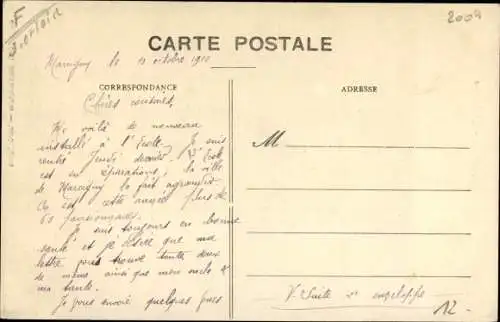 F
2009
CARTE POSTALE
Marcigny le 10 octobre 1910
CORRESPONDANCE
ADRESSE
Chères cousines,
Me voilà de nouveau
installé à l'Ecole. Je suis
rentré Jeudi dernier. L'Ecole
est en réparations, la ville
de Marcigny la fait agrandir.
On est cette année plus de
60 pensionnaires.
Je suis toujours en bonne
santé et je désire que ma
lettre vous trouve toutes deux
de même ainsi que mon oncle et
ma tante.
Je vous envoie quelques vues
M
V. Suite sr enveloppe
12